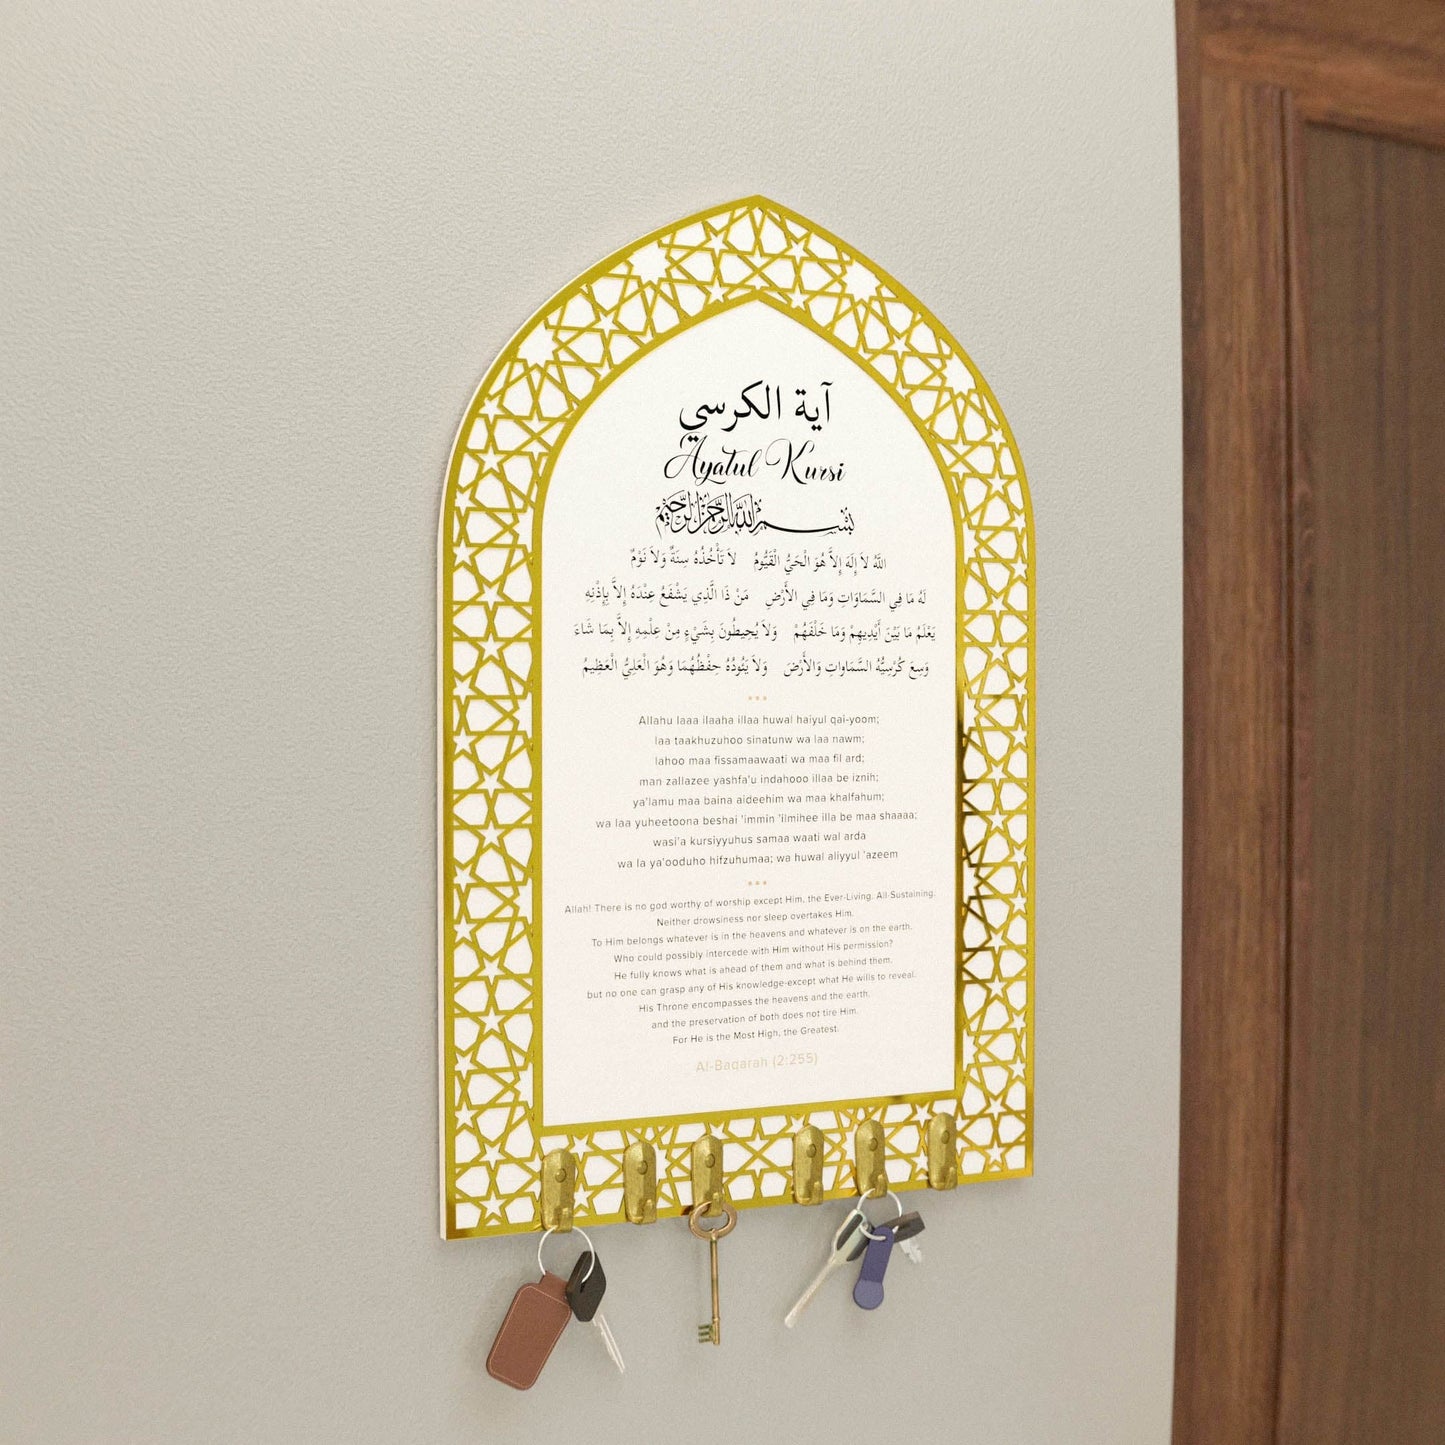 آية الكرسي
Ayatul Kursi
بسم الله الرحمن الرحيم
اللَّهُ لاَ إِلَهَ إِلاَّ هُوَ الْحَيُّ الْقَيُّومُ لاَ تَأْخُذُهُ سِنَةٌ وَلاَ نَوْمٌ
لَهُ مَا فِي السَّمَاوَاتِ وَمَا فِي الأَرْضِ مَنْ ذَا الَّذِي يَشْفَعُ عِنْدَهُ إِلاَّ بِإِذْنِهِ
يَعْلَمُ مَا بَيْنَ أَيْدِيهِمْ وَمَا خَلْفَهُمْ وَلاَ يُحِيطُونَ بِشَيْءٍ مِنْ عِلْمِهِ إِلاَّ بِمَا شَاءَ
وَسِعَ كُرْسِيُّهُ السَّمَاوَاتِ وَالأَرْضَ وَلاَ يَئُودُهُ حِفْظُهُمَا وَهُوَ الْعَلِيُّ الْعَظِيمُ
Allahu laaa ilaaha illaa huwal haiyul qai-yoom;
laa taakhuzuhoo sinatunw wa laa nawm;
lahoo maa fissamaawaati wa maa fil ard;
man zallazee yashfa'u indahooo illaa be iznih;
ya'lamu maa baina aideehim wa maa khalfahum;
wa laa yuheetoona beshai 'immin 'ilmihee illa be maa shaaaa;
wasi'a kursiyyuhus samaa waati wal arda
wa la ya'ooduho hifzuhumaa; wa huwal aliyyul 'azeem
Allah! There is no god worthy of worship except Him, the Ever-Living, All-Sustaining.
Neither drowsiness nor sleep overtakes Him.
To Him belongs whatever is in the heavens and whatever is on the earth.
Who could possibly intercede with Him without His permission?
He fully knows what is ahead of them and what is behind them,
but no one can grasp any of His knowledge-except what He wills to reveal.
His Throne encompasses the heavens and the earth,
and the preservation of both does not tire Him.
For He is the Most High, the Greatest.
Al-Baqarah (2:255)